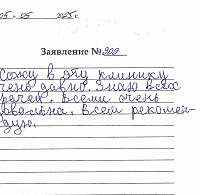 05 . 05 2025г.
Заявление № 309
Хожу в эту клинику
очень давно. Знаю всех
врачей. Всеми очень
довольна. Всем рекомен-
дую.